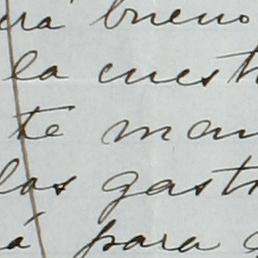 erá bueno
la cuest
te man
los gast
á para